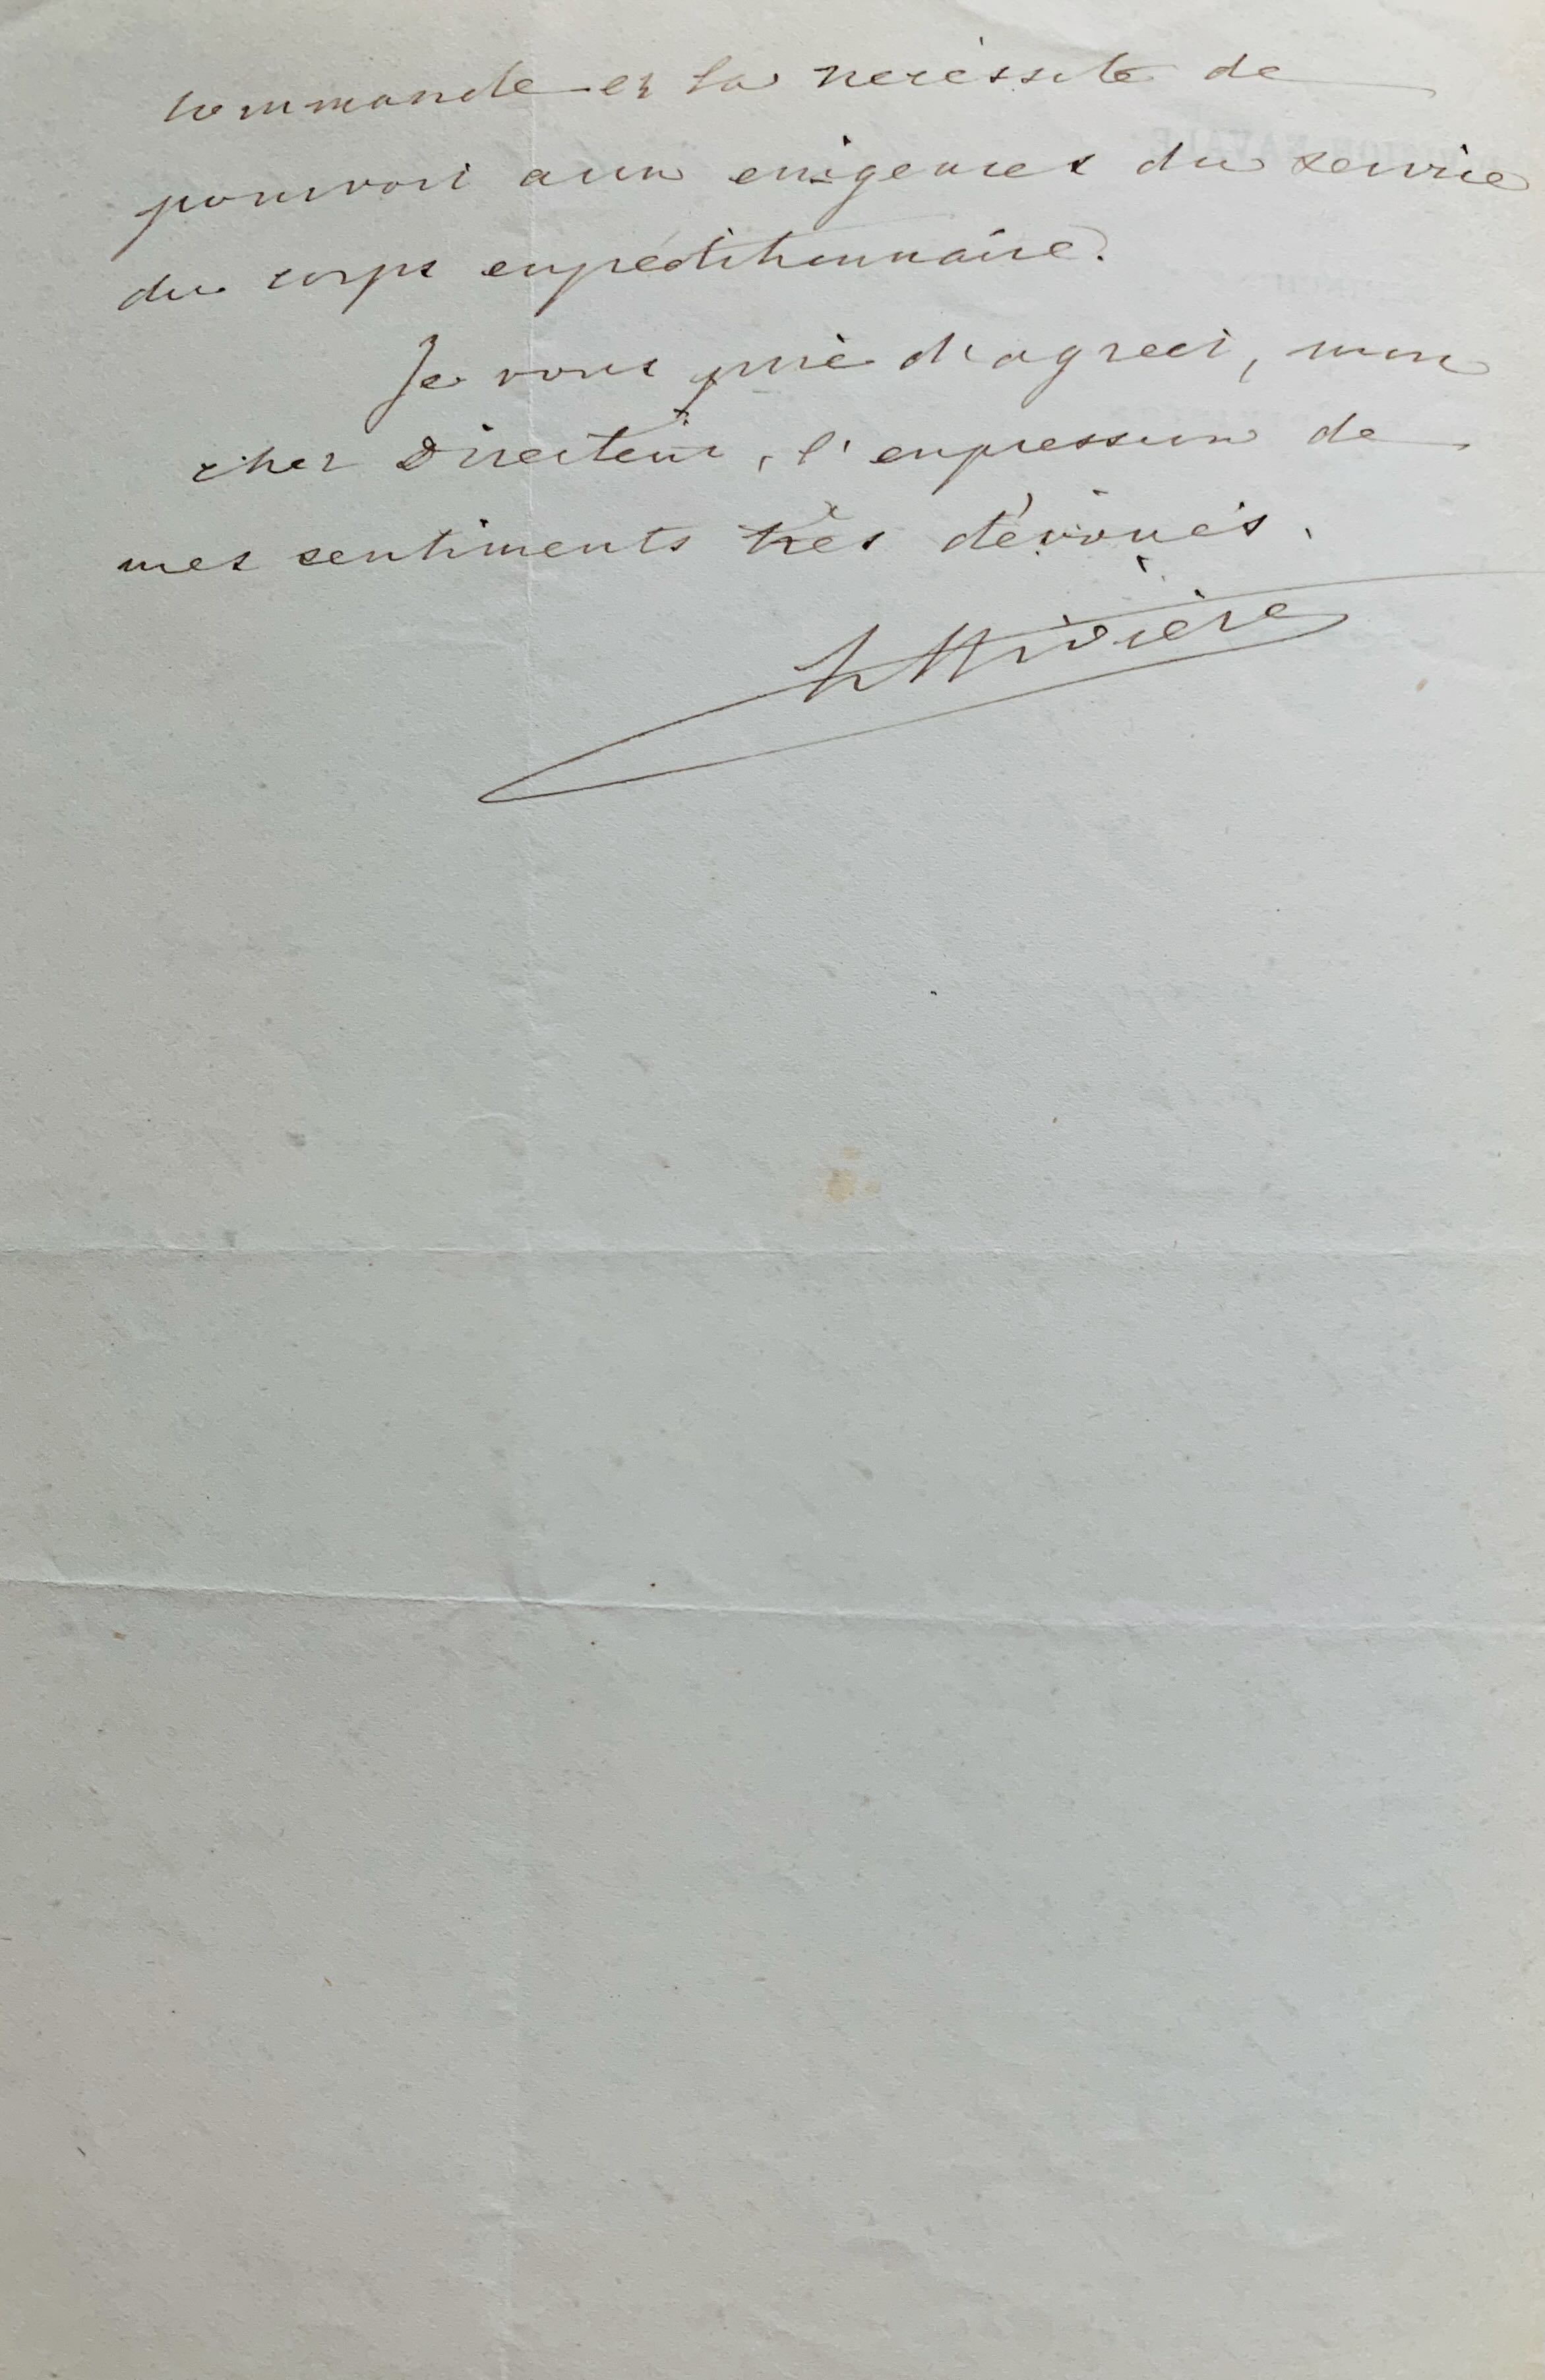 commande et la necéssité de
pourvoir aux exigences du service
du corps expéditionnaire.
Je vous prie d'agréer, mon
cher Directeur, l'expression de
mes sentiments très dévoués.
h Rivière